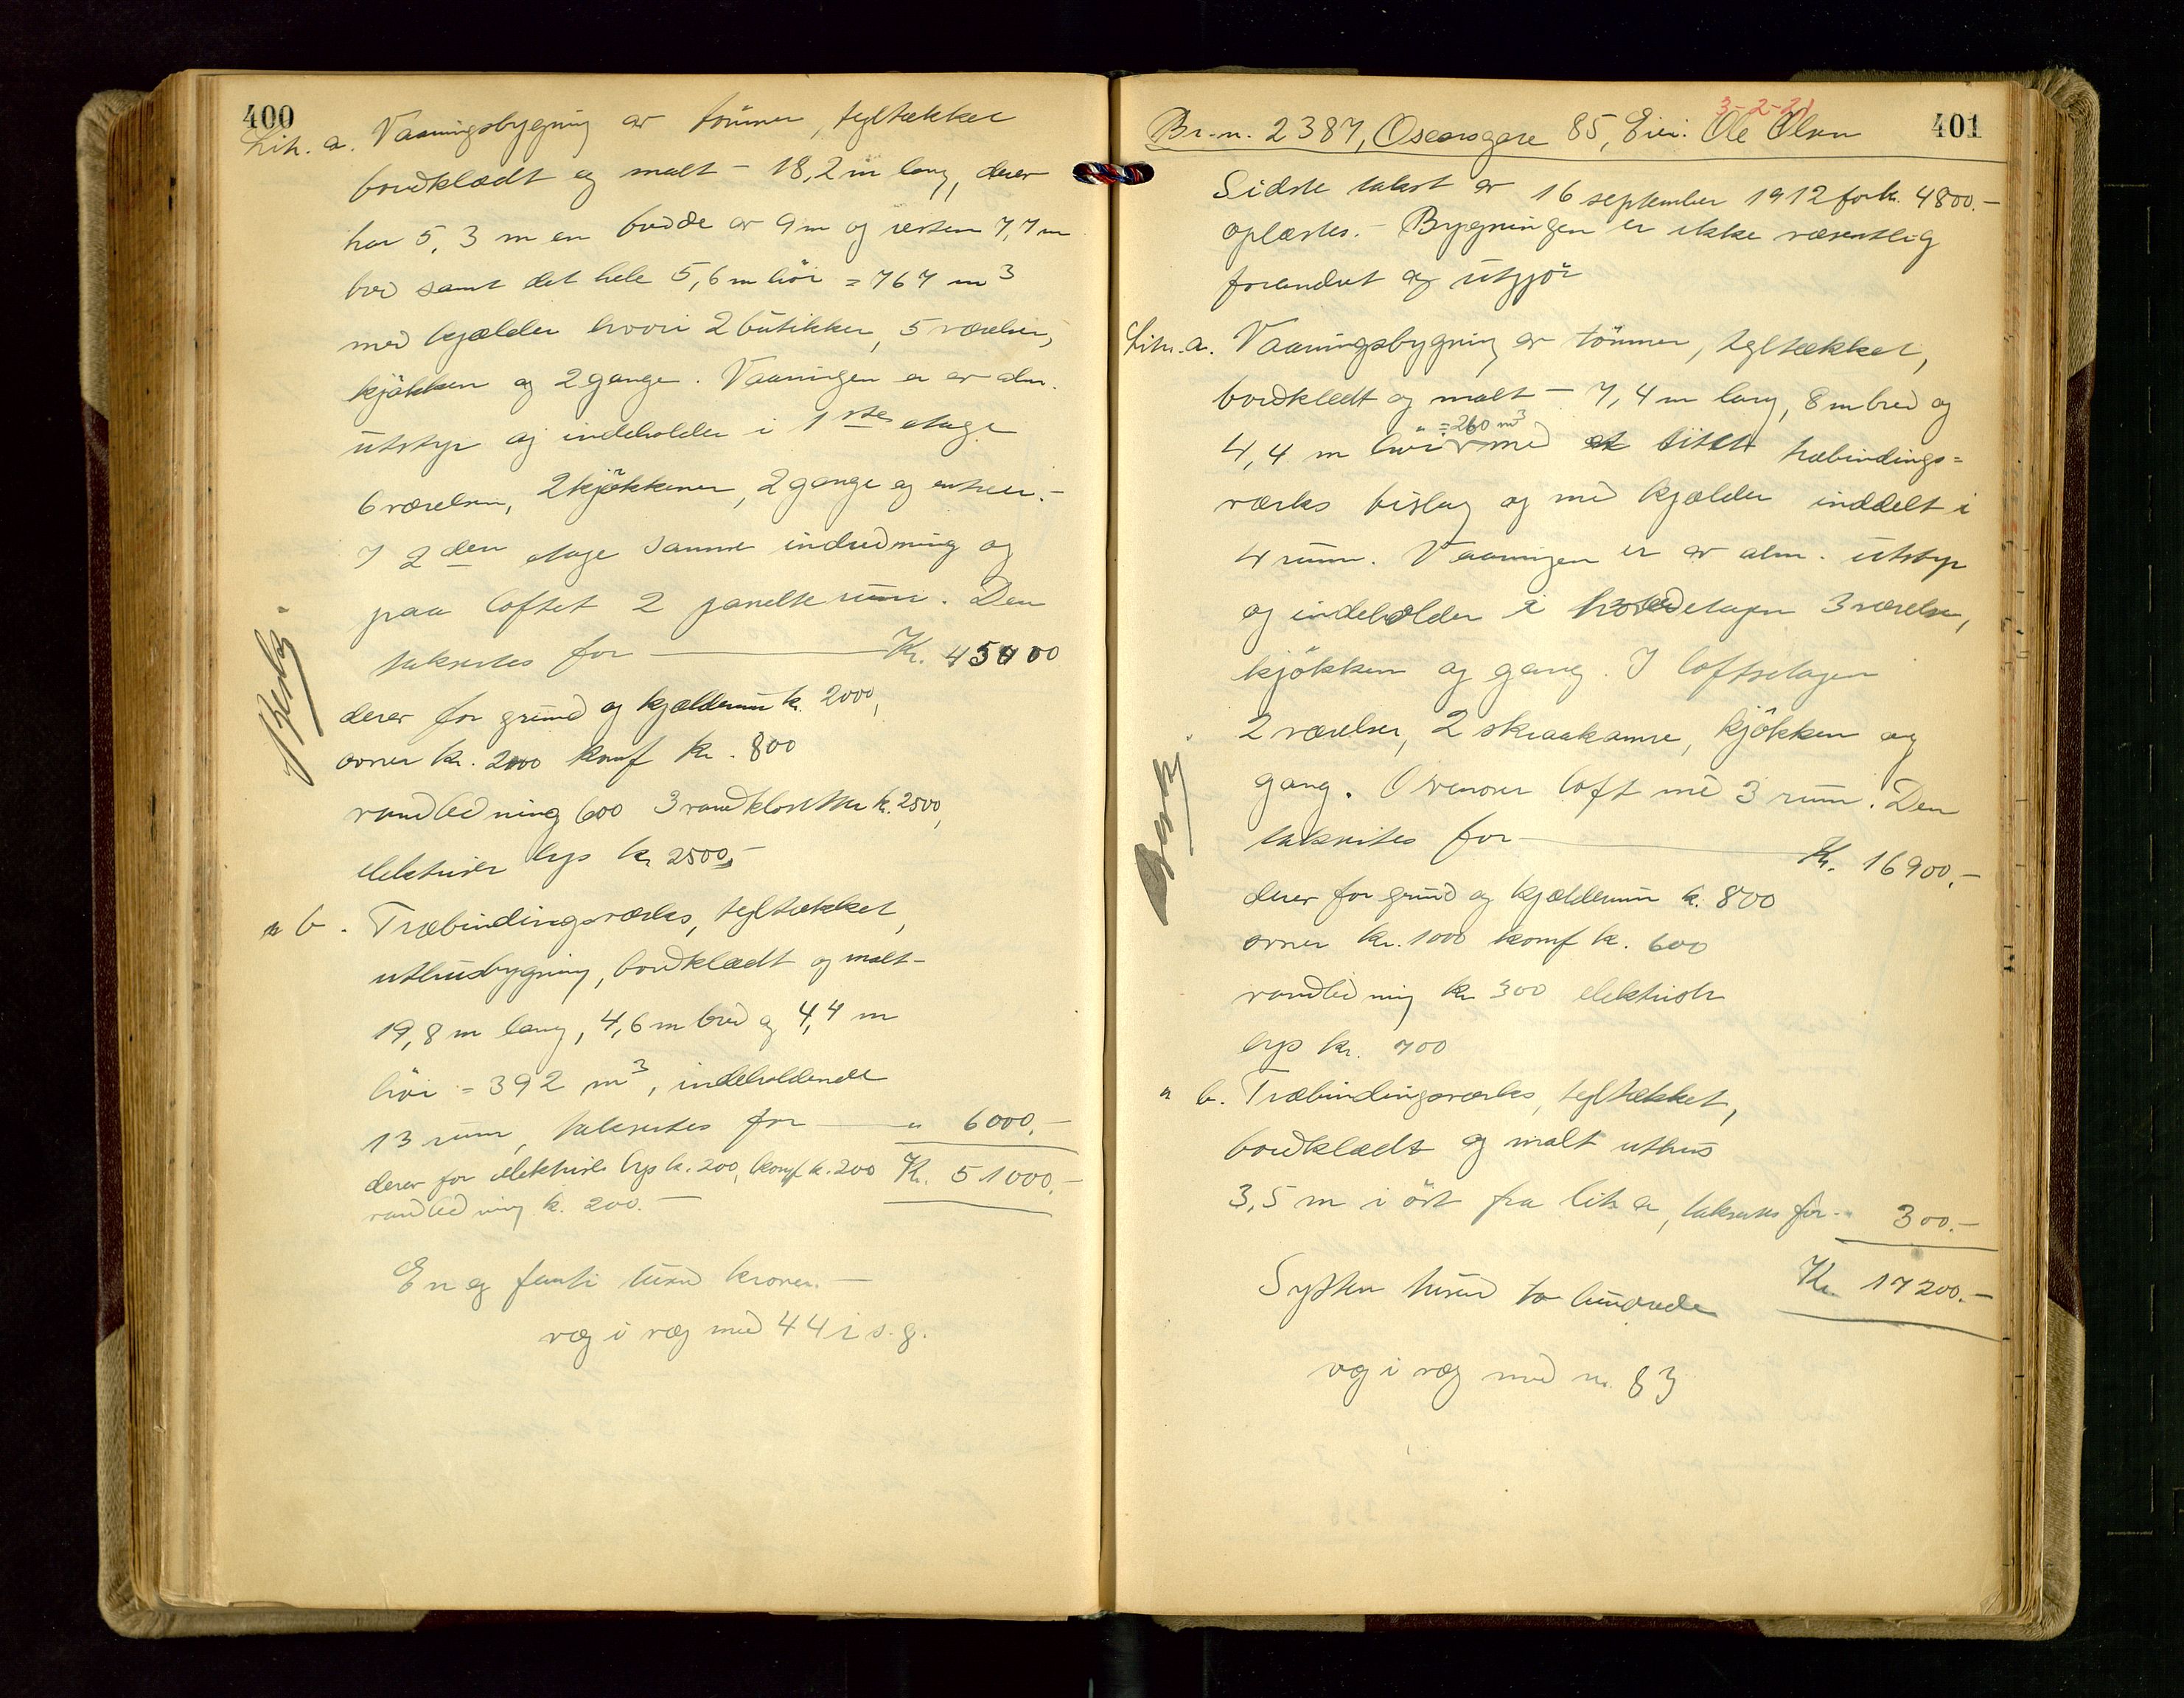 400
Litr. a. Vaaningsbygning av tömmer, tegltækket
bordklædt og malt - 18,2 m lang, derav
har 5,3 m en bredde av 9 m og resten 7,7 m
bred samt det hele 5,6 m höi = 767 m3
med kjælder hvori 2 butikker, 5 værelser,
kjökken og 2 gange. Vaaningen er av alm.
utstyr og indeholder i 1ste etage
6 værelser, 2 kjökkener, 2 gange og entreer. -
I 2den etage samme indredning og
paa loftet 2 panelte rum. Den
takseres for Kr. 45000
derav for grund og kjælderrum kr. 2000,
ovner kr. 2000 komf kr. 800
vandledning 600 3 vandklosetter kr. 2500,
elektrisk lys kr 2500,-
" b. Træbindingsverks, tegltækket,
uthusbygning, bordklædt og malt -
19,8 m lang, 4,6 m bred og 4,4 m
höi = 392 m3, indeholdende
13 rum, takseres for " 6000.-
derav for elektrisk lys kr. 200, komf kr. 200 Kr. 51000.-
vandledning kr. 200.-
En og femti tusind kroner. -
væg i væg med 44 i s. g.
401
3-2-21
Br. n. 2387, Oscarsgate 85, Eier: Ole Olsen
Sidste takst av 16 september 1912 for kr. 4800.-
oplæstes. - Bygningen er ikke væsentlig
forandret og utgjör
Litr. a. Vaaningsbygning av tömmer, tegltækket,
bordklædt og malt - 7,4 m lang, 8 m bred og
= 260 m3
4,4 m höi med et litet træbindings=
værks bislag og med kjælder inddelt i
4 rum. Vaaningen er av alm. utstyr
og indeholder i hovedetagen 3 værelser,
kjökken og gang. I loftsetagen
2 værelser, 2 skraakamre, kjökken og
gang. Ovenover loft med 3 rum. Den
takseres for Kr. 16900.-
derav for grund og kjælderrum kr. 800
ovner kr. 1000 komf kr. 600
vandledning kr 300 elektrisk
lys kr. 700
" b. Træbindingsværks, tegltækket,
bordklædt og malt uthus
3,5 m i öst fra litr a, takseres for " 300.-
Kr. 17200.-
Sytten tusind to hundrede
væg i væg med nr. 83